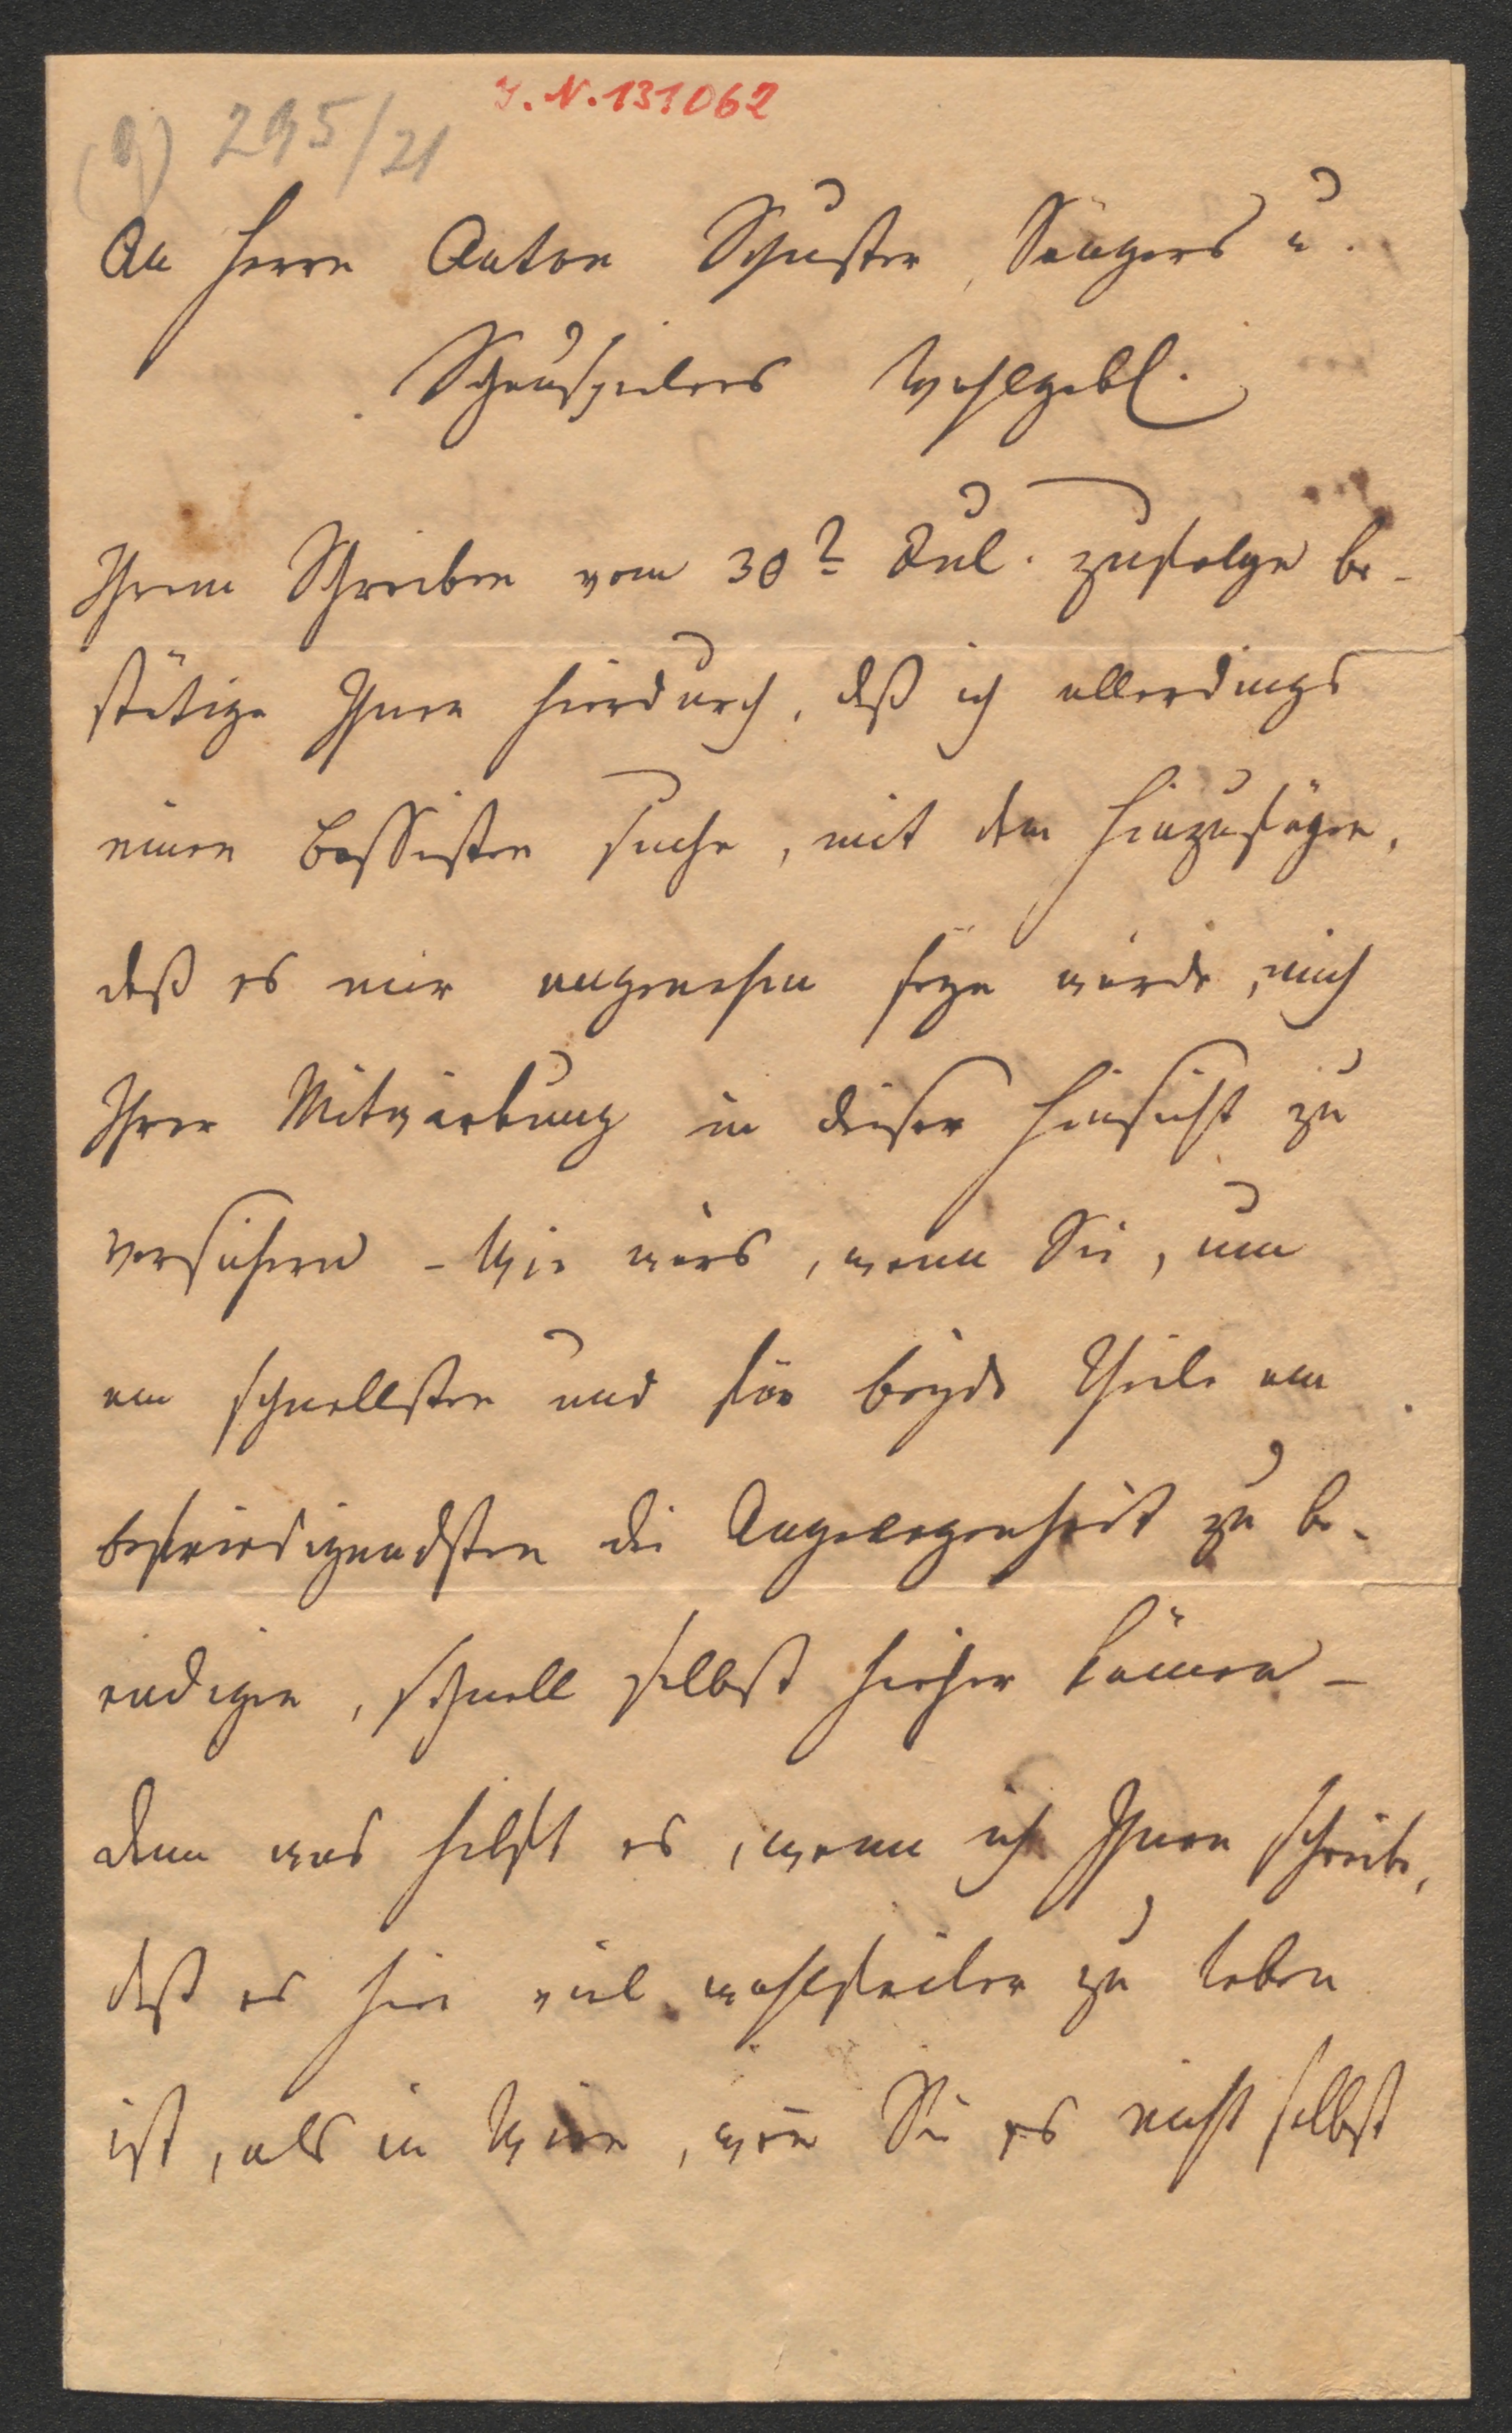 I. N. 131062
295/21
An Herrn Anton Schuster, Sängers u.
Schauspielers Wohlgebl.
Ihrem Schreiben vom 30t Jul. zufolge be-
stätige Ihnen hierdurch, daß ich allerdings
einen Bassisten suche, mit dem Hinzufügen,
daß es mir angenehm seyn würde, mich
Ihrer Mitwürkung in dieser Hinsicht zu
versichern – Wie wärs, wenn Sie, um
am schnellsten und für beyde Theile am
befriedigendsten die Angelegenheit zu be-
endigen, schnell selbst hieher kämen –
denn was hilft es, wenn ich Ihnen schreibe,
daß es hier viel wohlfeiler zu leben
ist, als in Wien, wen̄ Sie es nicht selbst